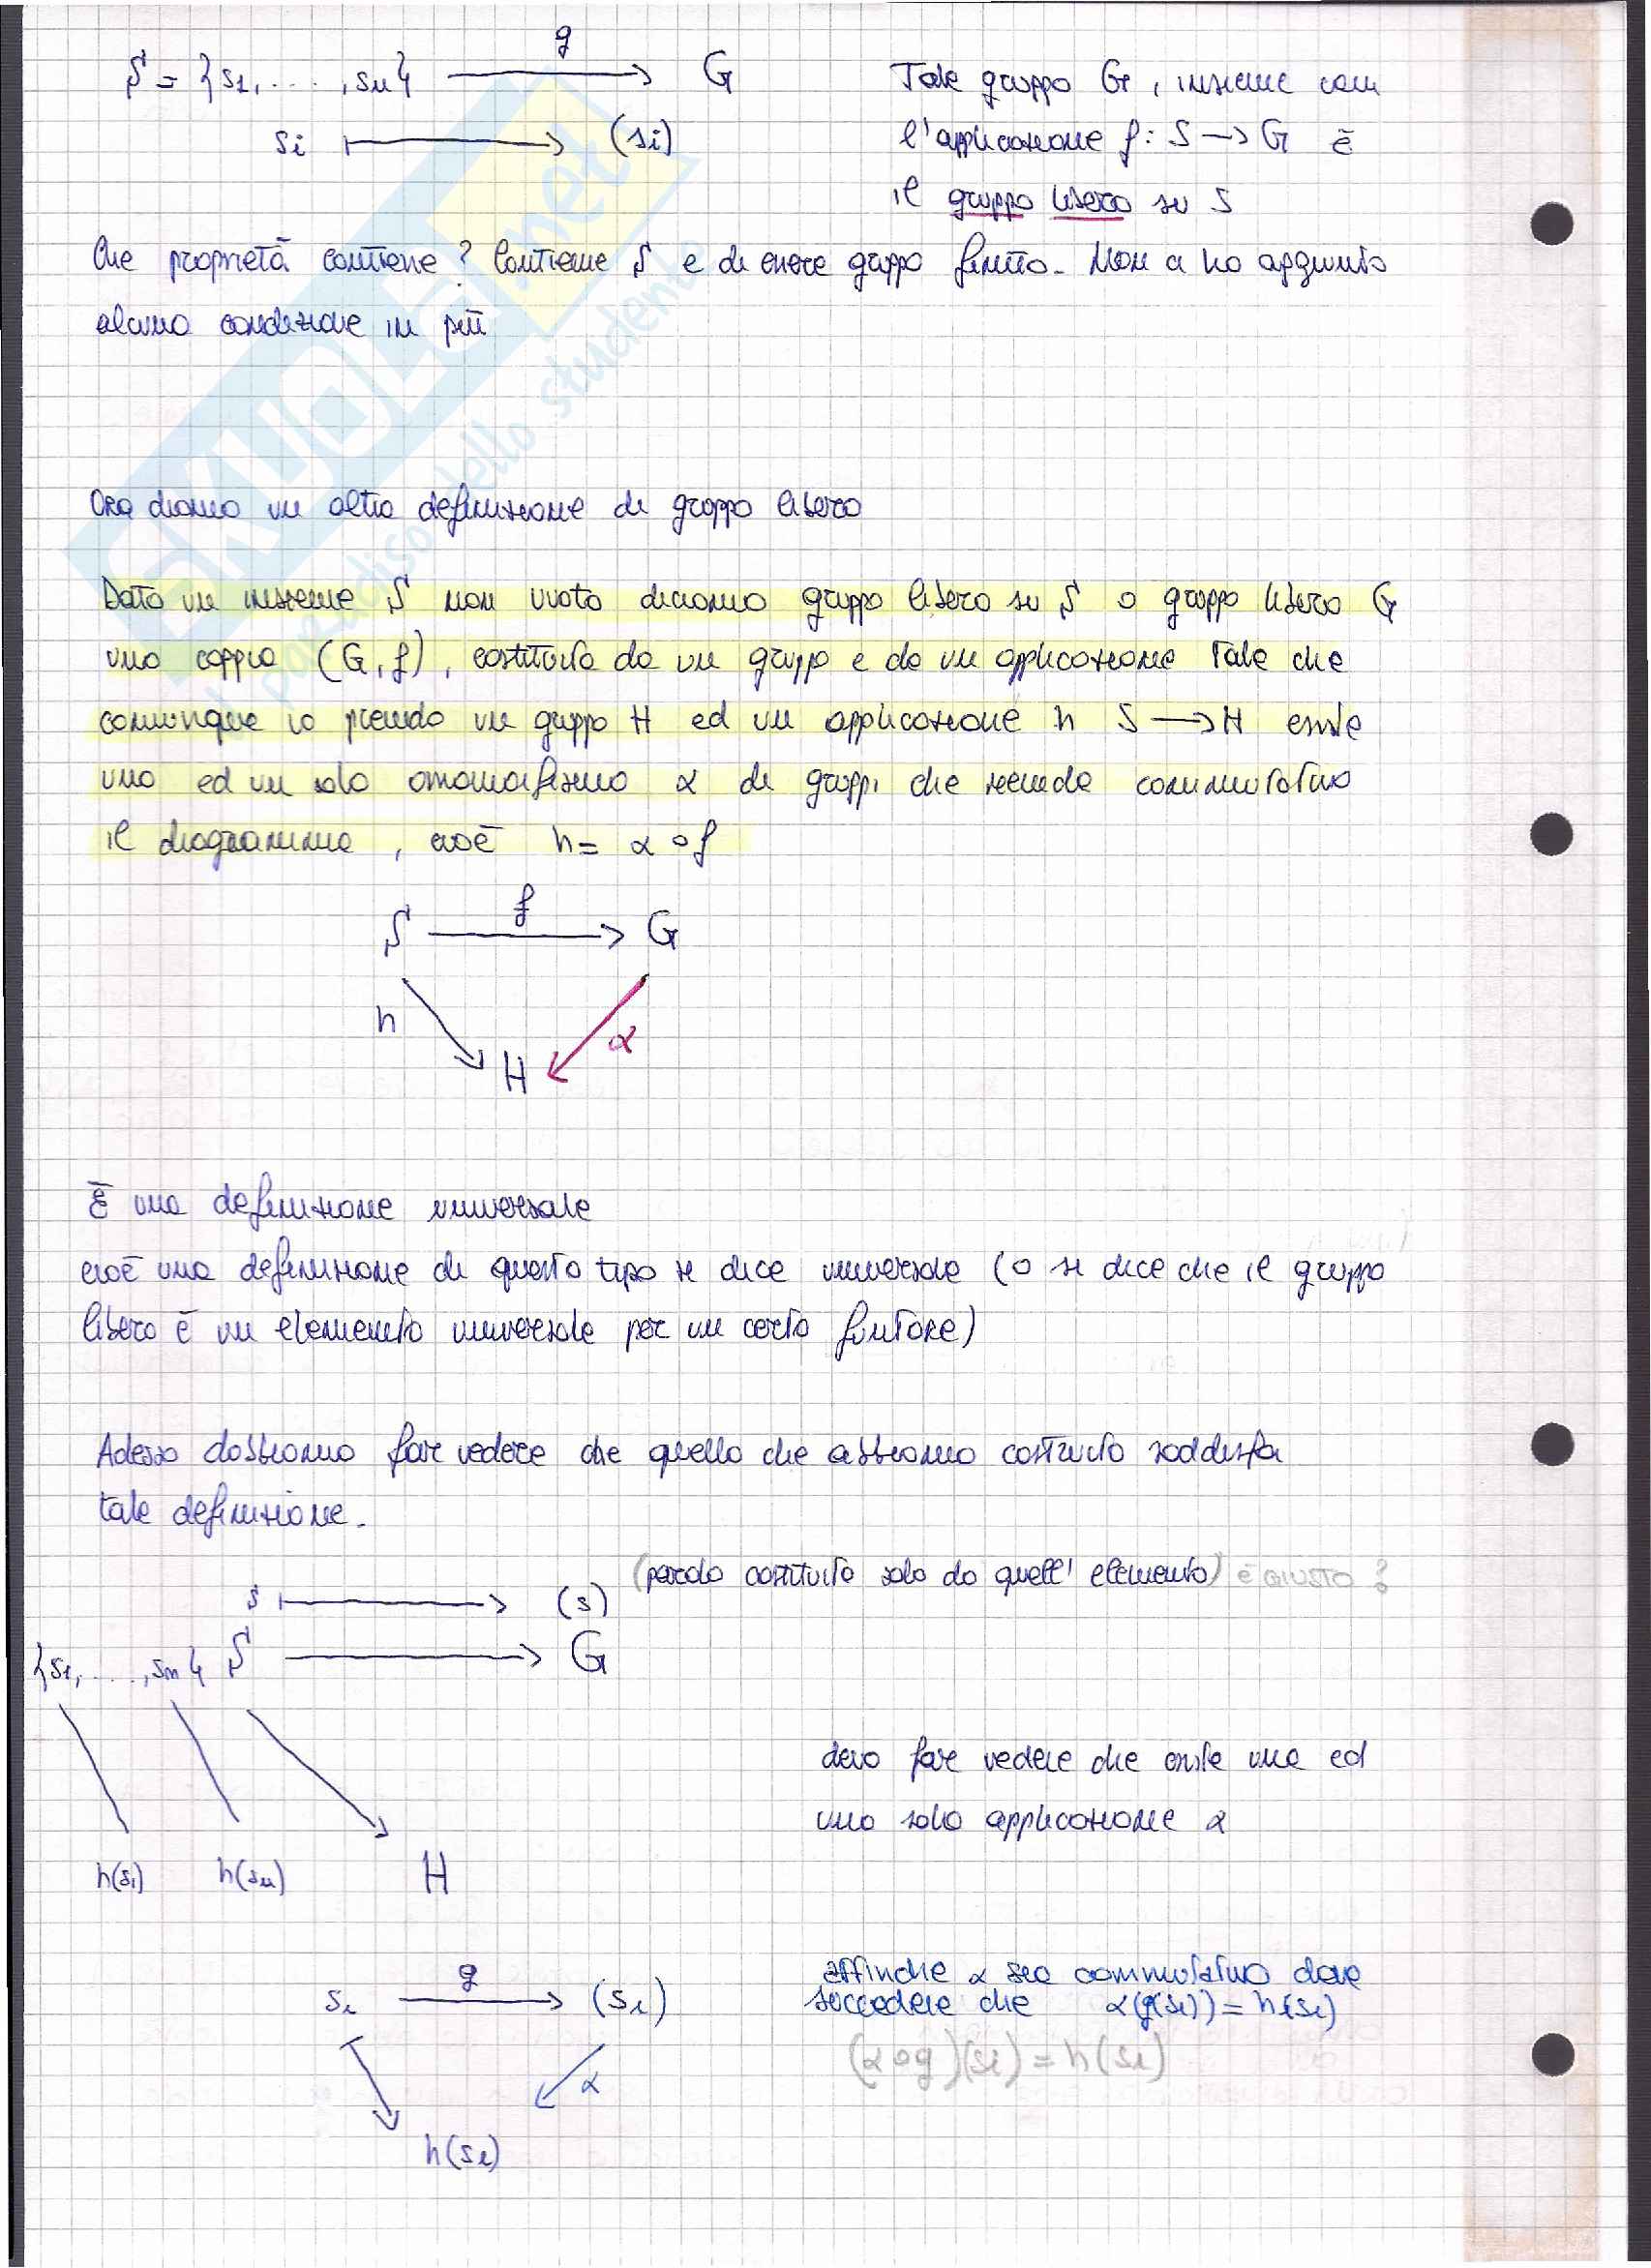 g
S = {s1, ...., sn} ⟶ G
si ⟼ (si)
Tale gruppo G, insieme con
l'applicazione f: S → G è
il gruppo libero su S
Che proprietà contiene? Contiene S e di essere gruppo finito. Non ci ho aggiunto
alcuna condizione in più
SKUOLA.net
il paradiso dello studente
Ora diamo un altra definizione di gruppo libero
Dato un insieme S non vuoto diciamo gruppo libero su S o gruppo libero G
una coppia (G, f), costituita da un gruppo e da un applicazione tale che
comunque io prendo un gruppo H ed un applicazione h S ⟶ H esiste
uno ed un solo omomorfismo α di gruppi che renda commutativo
il diagramma, cioè h = α∘f
f
S ⟶ G
h α
H
È una definizione universale
cioè una definizione di questo tipo si dice universale (o si dice che il gruppo
libero è un elemento universale per un certo funtore)
Adesso dobbiamo far vedere che quello che abbiamo costruito soddisfa
tale definizione.
s ⟼ (s) (parola costituita solo da quell' elemento) È GIUSTO?
{s1, ...., sn} S ⟶ G
devo far vedere che esiste una ed
una sola applicazione α
h(s1) h(sn) H
g
si ⟶ (si)
α
h(si)
affinche α sia commutativo deve
succedere che α(g(si)) = h(si)
(α∘g)(si) = h(si)